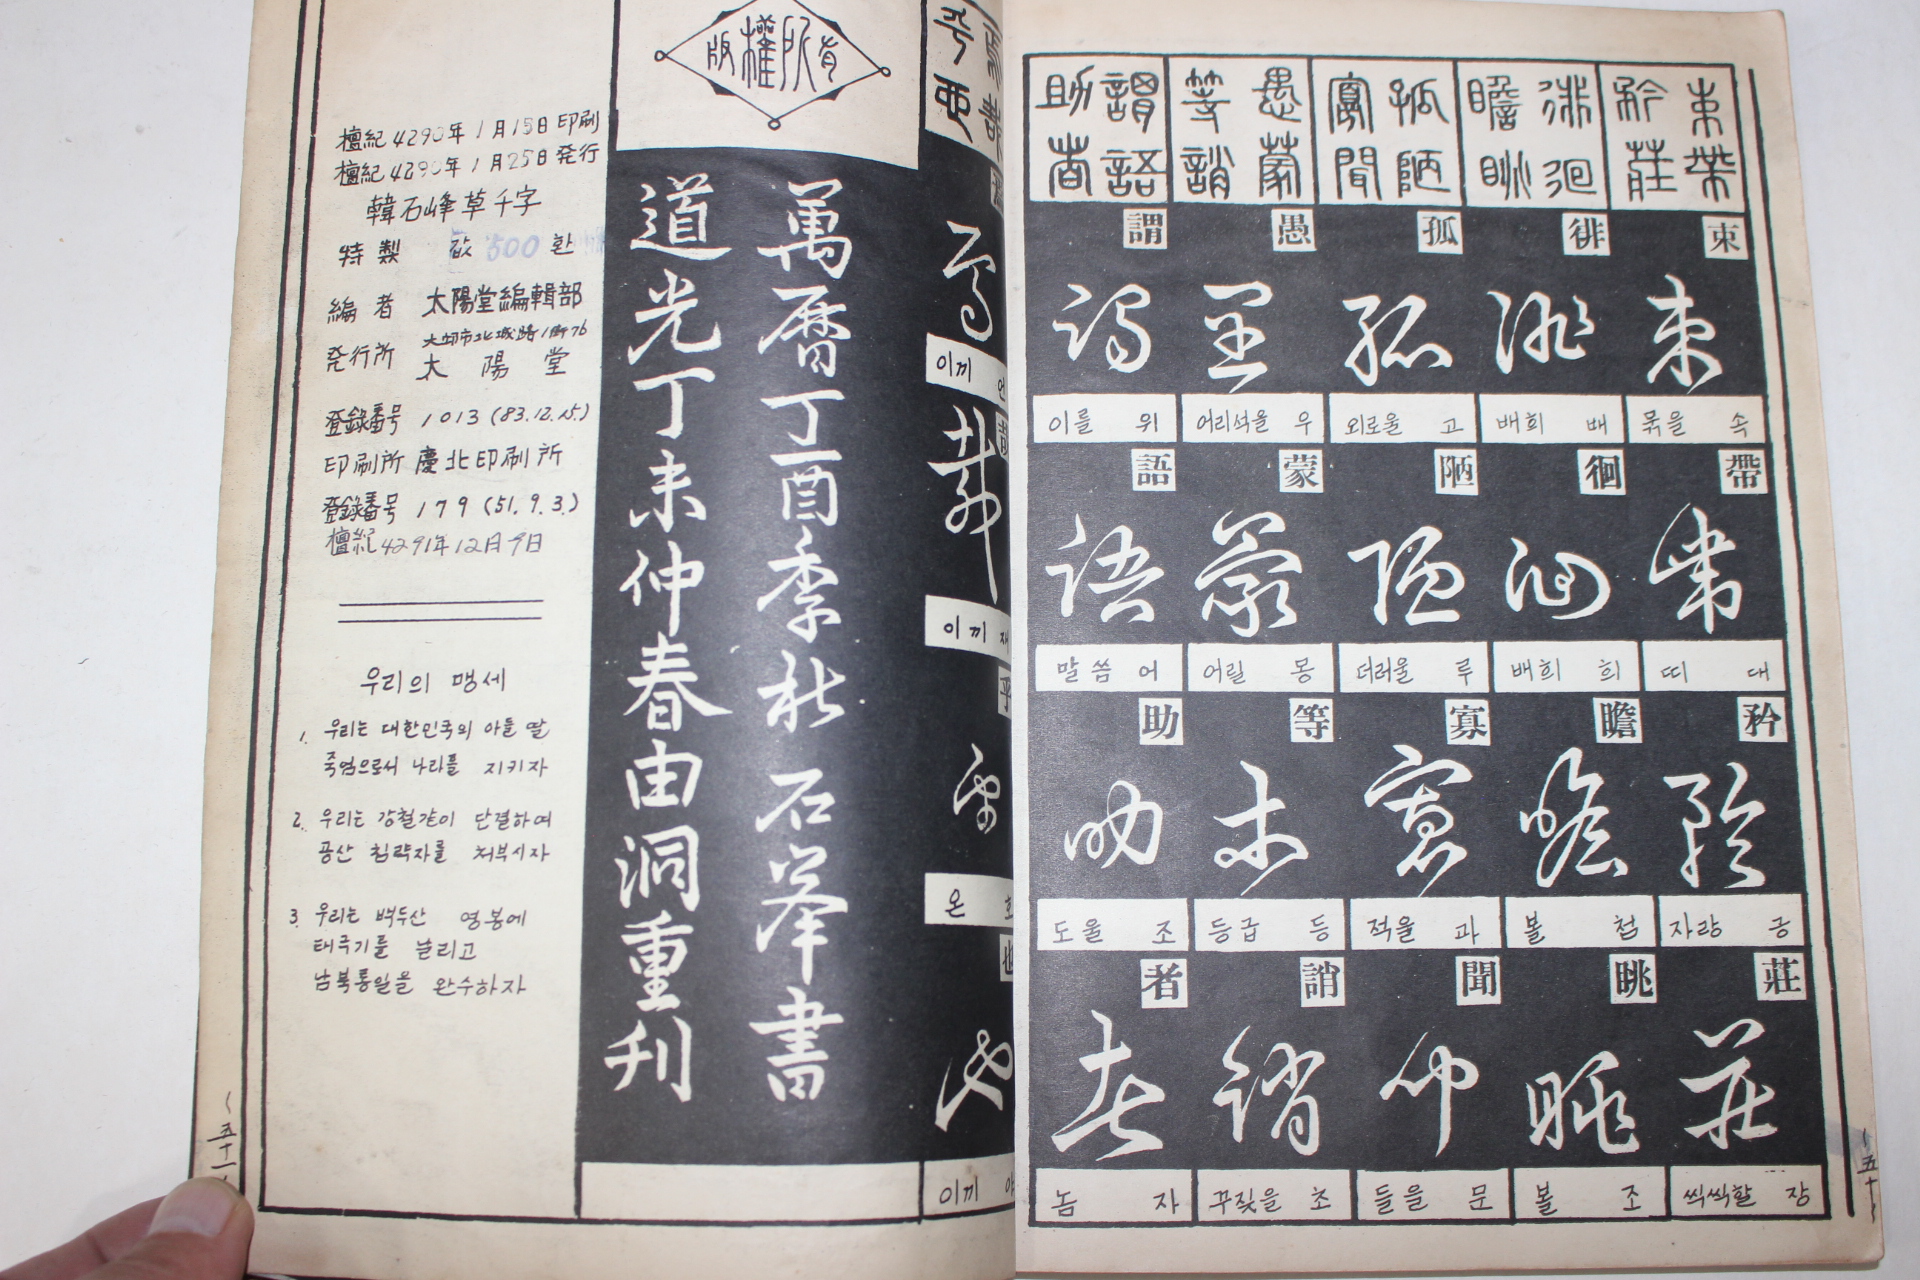 版權所有
檀紀4290年1月15日印刷
檀紀4290年1月25日発行
韓石峰草千字
特製 500 환
編者 太陽堂編輯部
大邱市北城路1街76
発行所 太陽堂
登錄番号 1013 (83.12.15)
印刷所 慶北印刷所
登錄番号 179 (51.9.3.)
檀紀4291年12月9日
우리의 맹세
1. 우리는 대한민국의 아들 딸
죽엄으로서 나라를 지키자
2. 우리는 강철같이 단결하여
공산 침략자를 처부시자
3. 우리는 백두산 영봉에
태극기를 날리고
남북통일을 완수하자
萬曆丁酉季秋石峯書
道光丁未仲春由洞重刊
이끼 언
이끼 재
온 호
이끼 야
五十一
束帶 矜莊
徘徊 瞻眺
孤陋 寡聞
愚蒙 等誚
謂語 助者
束 徘 孤 愚 謂
묶을 속
배회 배
외로울 고
어리석을 우
이를 위
帶 徊 陋 蒙 語
띠 대
배희 희
더러울 루
어릴 몽
말씀 어
矜 瞻 寡 等 助
자랑 긍
볼 첨
적을 과
등급 등
도울 조
莊 眺 聞 誚 者
씩씩할 장
볼 조
들을 문
꾸짖을 초
놈 자
五十